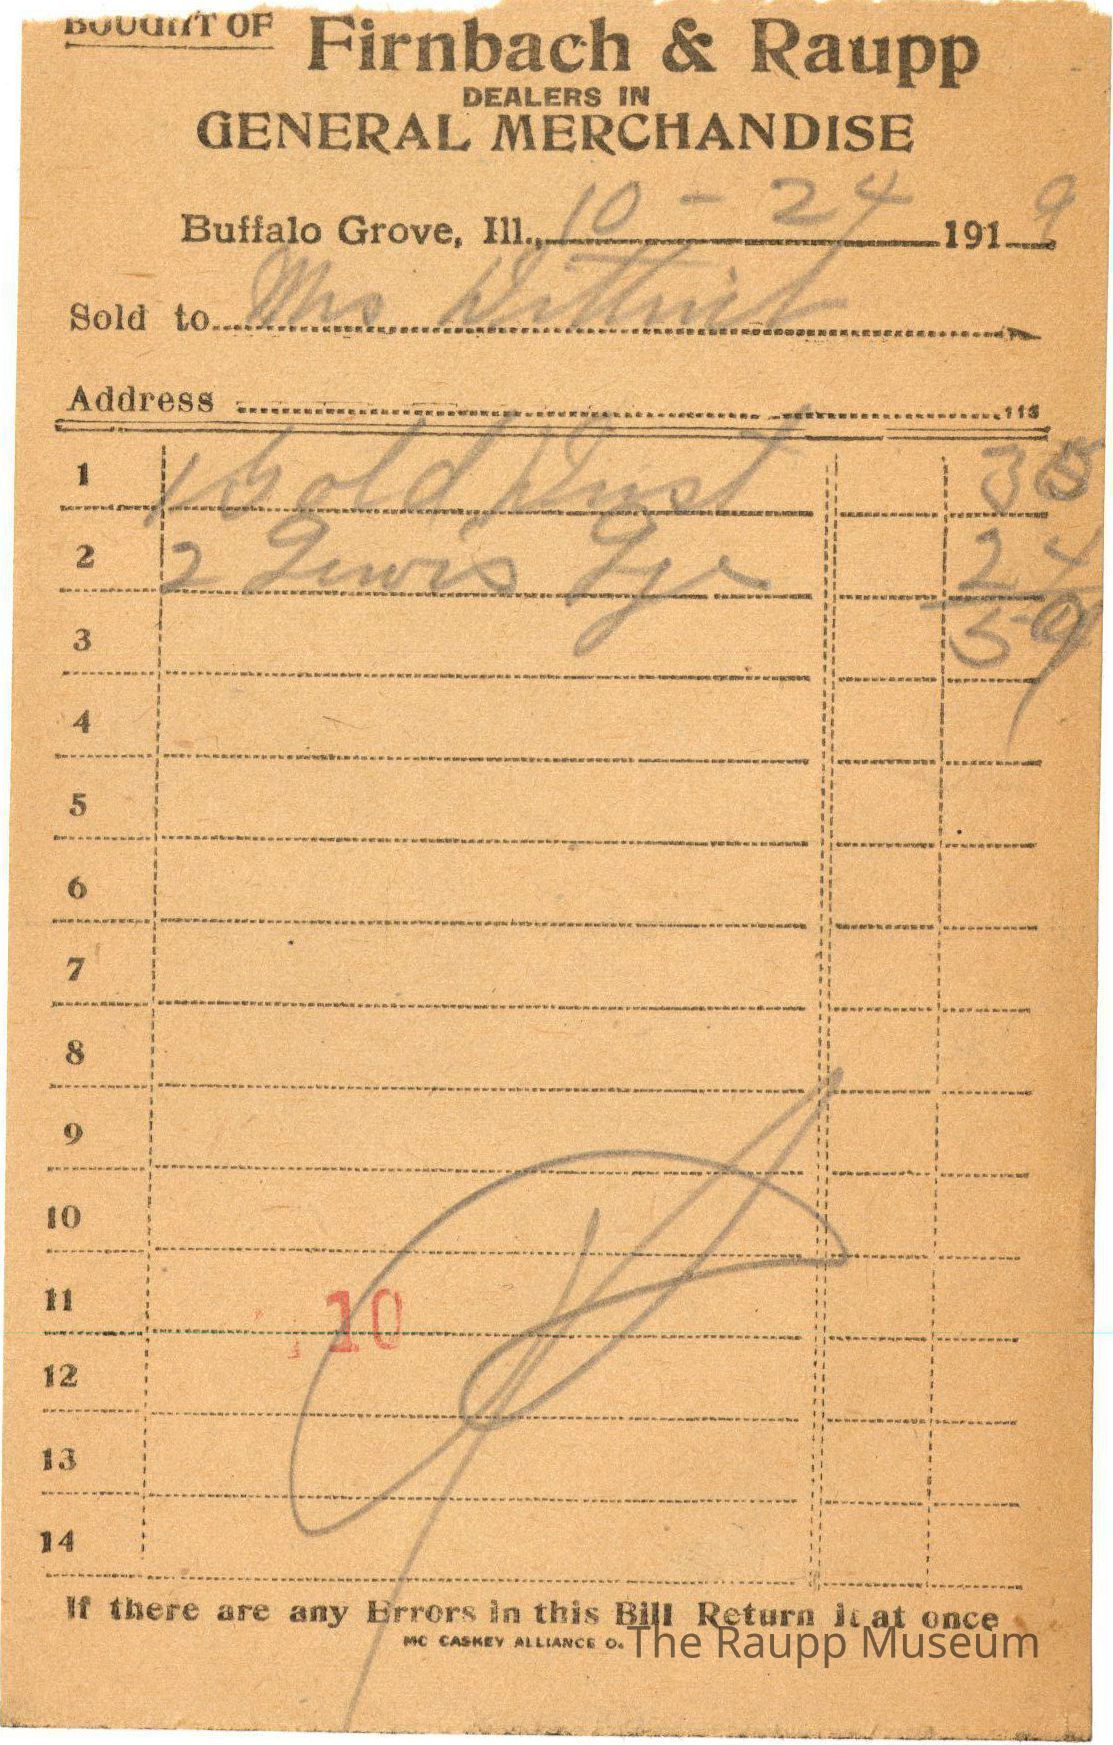 BOUGHT OF
Firnbach & Raupp
DEALERS IN
GENERAL MERCHANDISE
Buffalo Grove, Ill., 10 - 24 1919
Sold to Mrs Dittrich
Address 113
1 1 Gold Dust 35
2 2 Lewis Lye 24
3 59
4
5
6
7
8
9
10
11 10
12
13
14
If there are any Errors in this Bill Return it at once
MC CASKEY ALLIANCE O.
The Raupp Museum